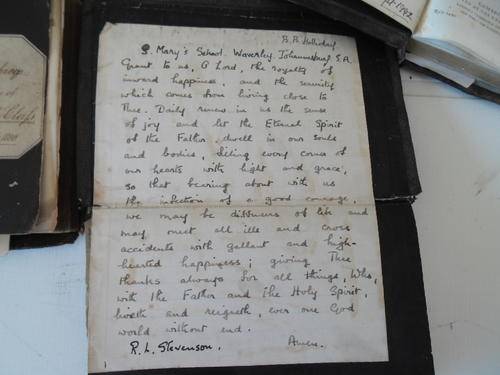 S. Mary's School. Waverley. Johannesburg S.A.
Grant to us, O Lord, the royalty of
inward happiness, and the serenity
which comes from living close to
Thee. Daily renew in us the sense
of joy and let the Eternal Spirit
of the Father dwell in our souls
and bodies, filling every corner of
our hearts with light and grace,
so that bearing about with us
the infection of a good courage,
we may be diffusers of life and
may meet all ills and cross
accidents with gallant and high-
hearted happiness; giving Thee
thanks always for all things, Who,
with the Father and the Holy Spirit,
liveth and reigneth, ever one God
world without end.
R. L. Stevenson. Amen.